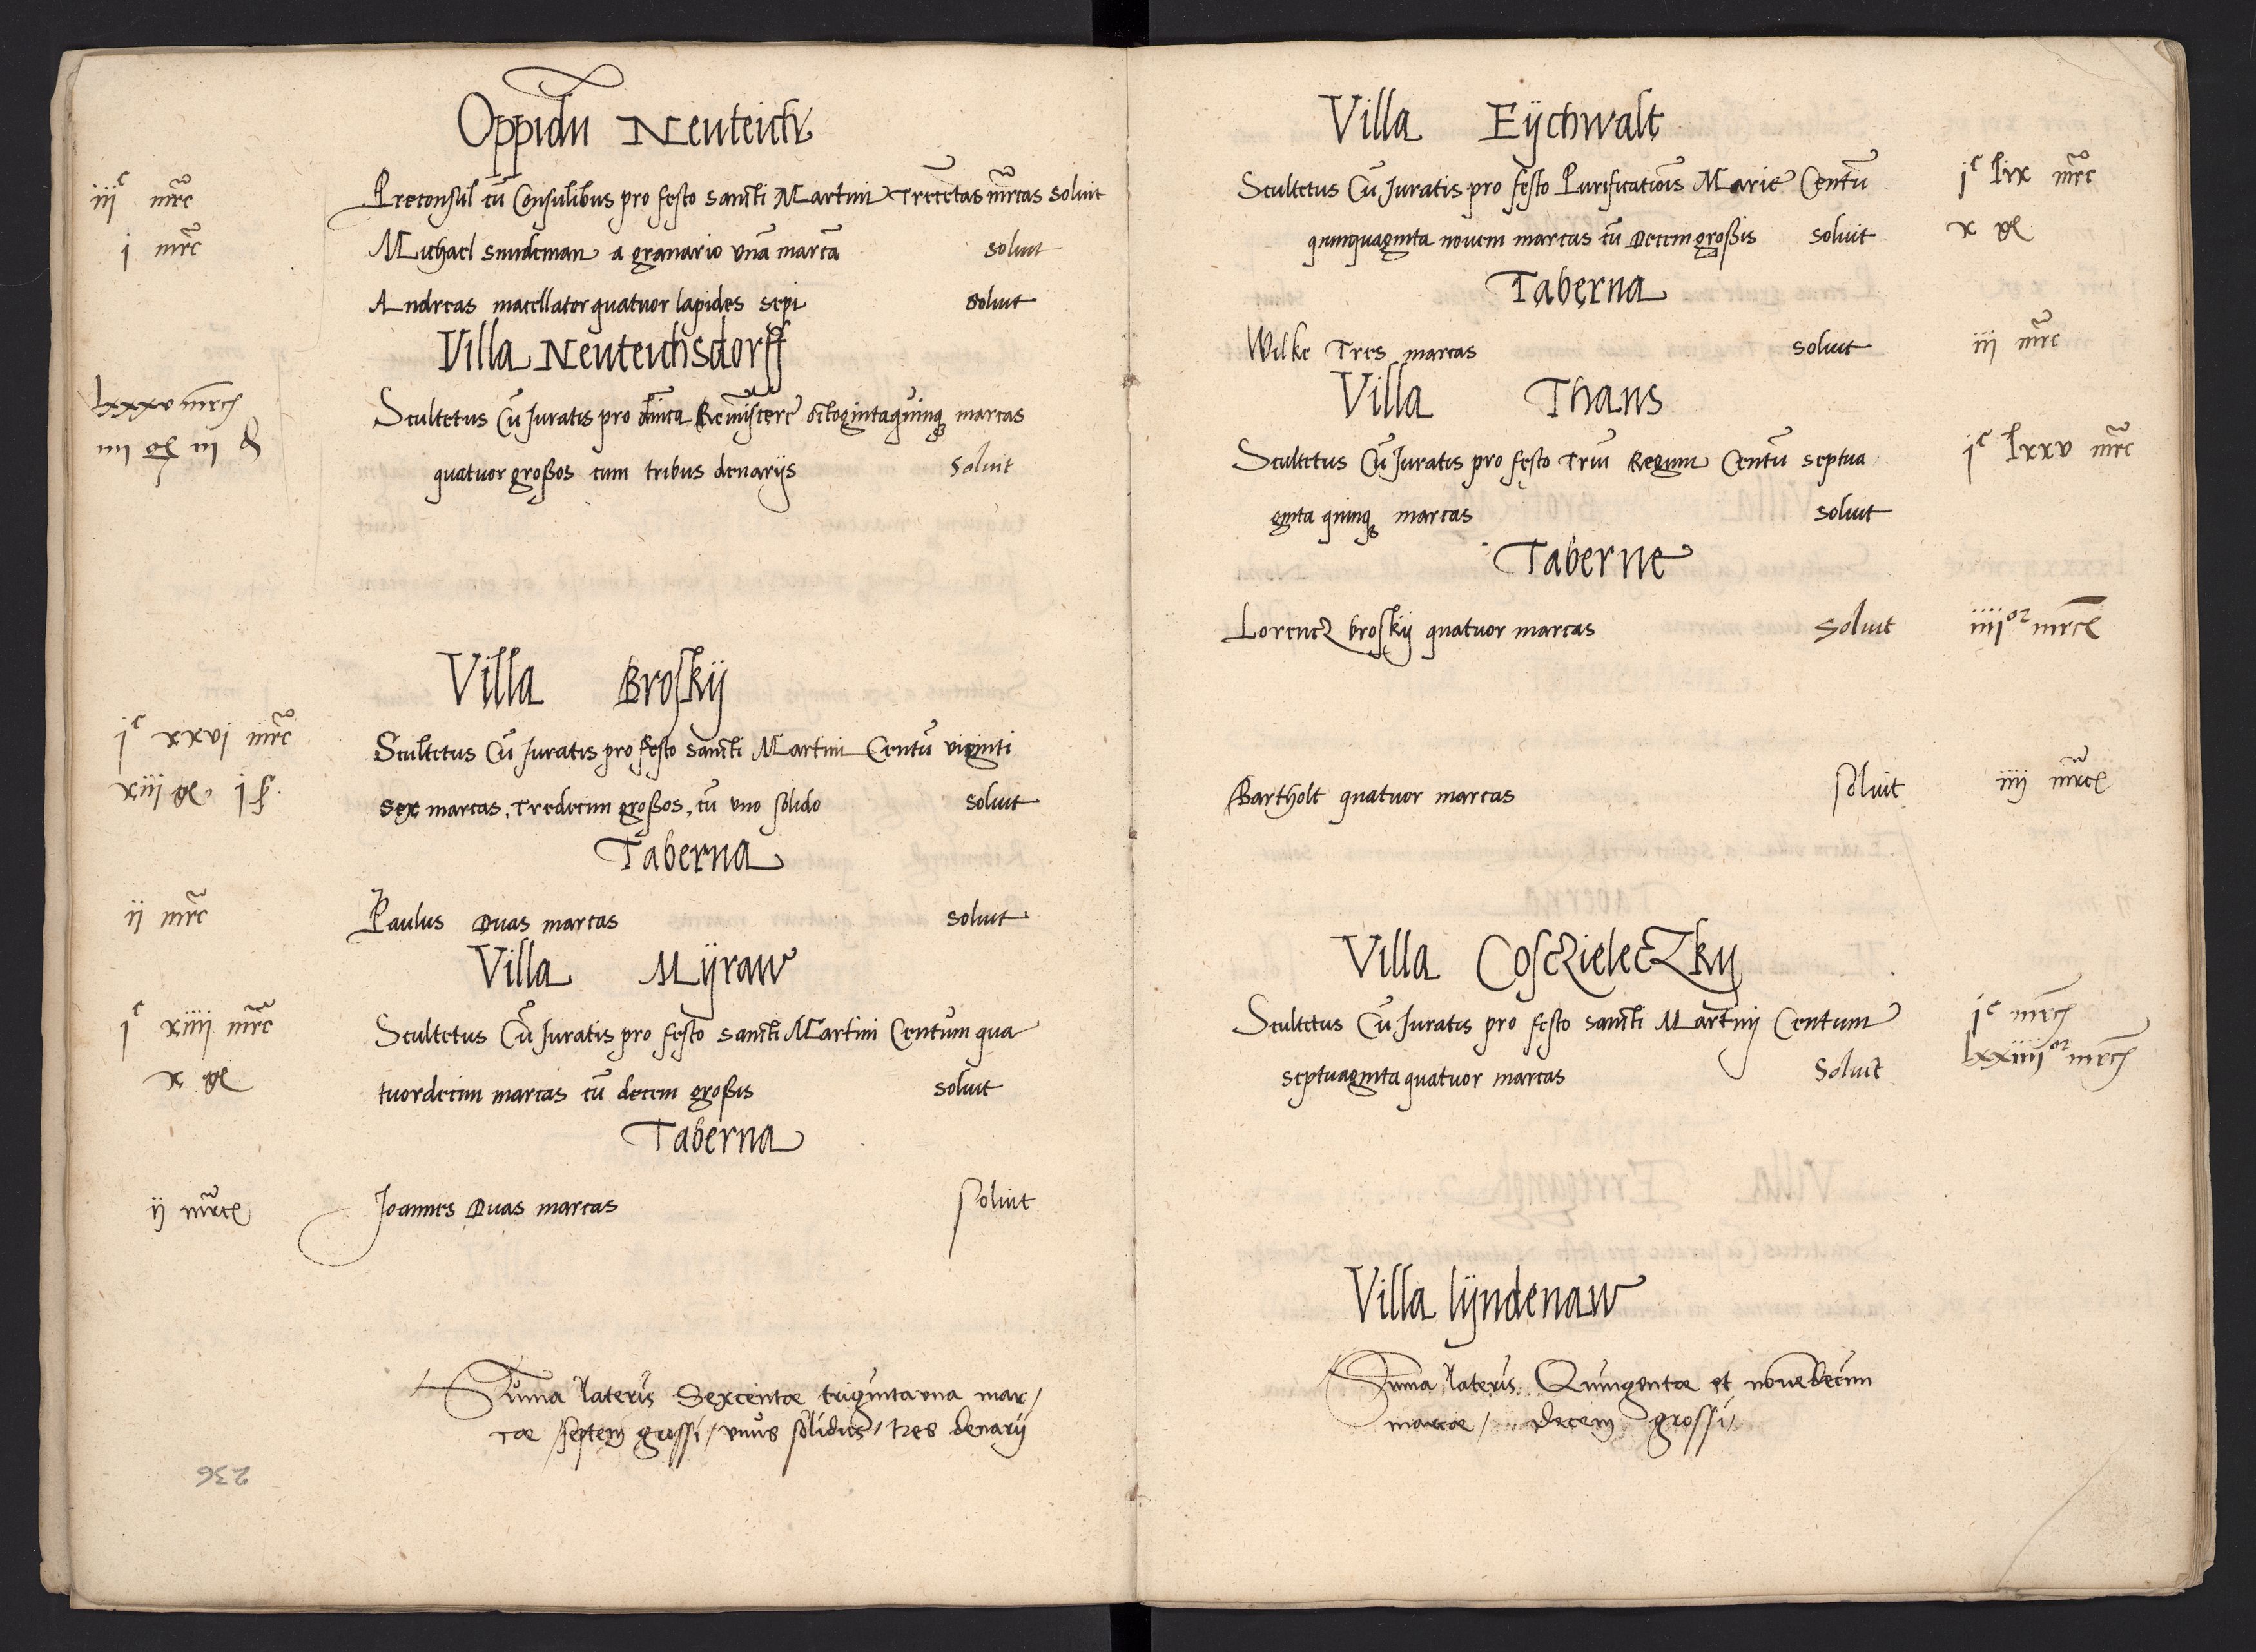 Oppidu Neuteich
iijc mrc Preconsul cu Consulibus pro festo sancti Martini Trecetas mrcas soluit
j mrc Michael smideman a granario vna marca soluit
Andreas macellator quatuor lapides sepi soluit
Villa Neuteichsdorff
lxxxv mrc Scultetus Cu Juratis pro dnica Remiscere octogintaquinq marcas
iiii g iii d quatuor großos cum tribus denarijs soluit
Villa Broskij
jc xxvj mrc Scultetus Cu Juratis pro festo sancti Martini Centu viginti
xiij g j s sex marcas, Tredecim großos, cu vno solido soluit
Taberna
ij mrc Paulus Duas marcas soluit
Villa Mijraw
jc xiiij mrc Scultetus Cu Juratis pro festo sancti Martini Centum qua
x g tuordecim marcas cu decem großis soluit
Taberna
ij mrc Joannes Duas marcas soluit
Suma lateris Sexcentæ triginta vna mar/
cæ septem grossi / vnus solidus / tres denarij
236
Villa Eijchwalt
Scultetus Cu Juratis pro festo Purificationis Marie Centu jc lix mrc
quinquaginta nouem marcas cu Decem großis soluit x g
Taberna
Wilke Tres marcas soluit iij mrc
Villa Thans
Scultetus Cu Juratis pro festo Triu Regum Centu septua jc lxxv mrc
ginta quinq marcas soluit
Taberne
Lorencz broskij quatuor marcas soluit iiijor mrc
Bartholt quatuor marcas soluit iiij mrc
Villa Cosczieleczkij
Scultetus Cu Juratis pro festo sancti Martinij Centum jc mrc
septuaginta quatuor marcas soluit lxxiiijor mrc
Villa lijndenaw
Suma lateris Quingentæ et nouedecim
marcæ / decem grossi /